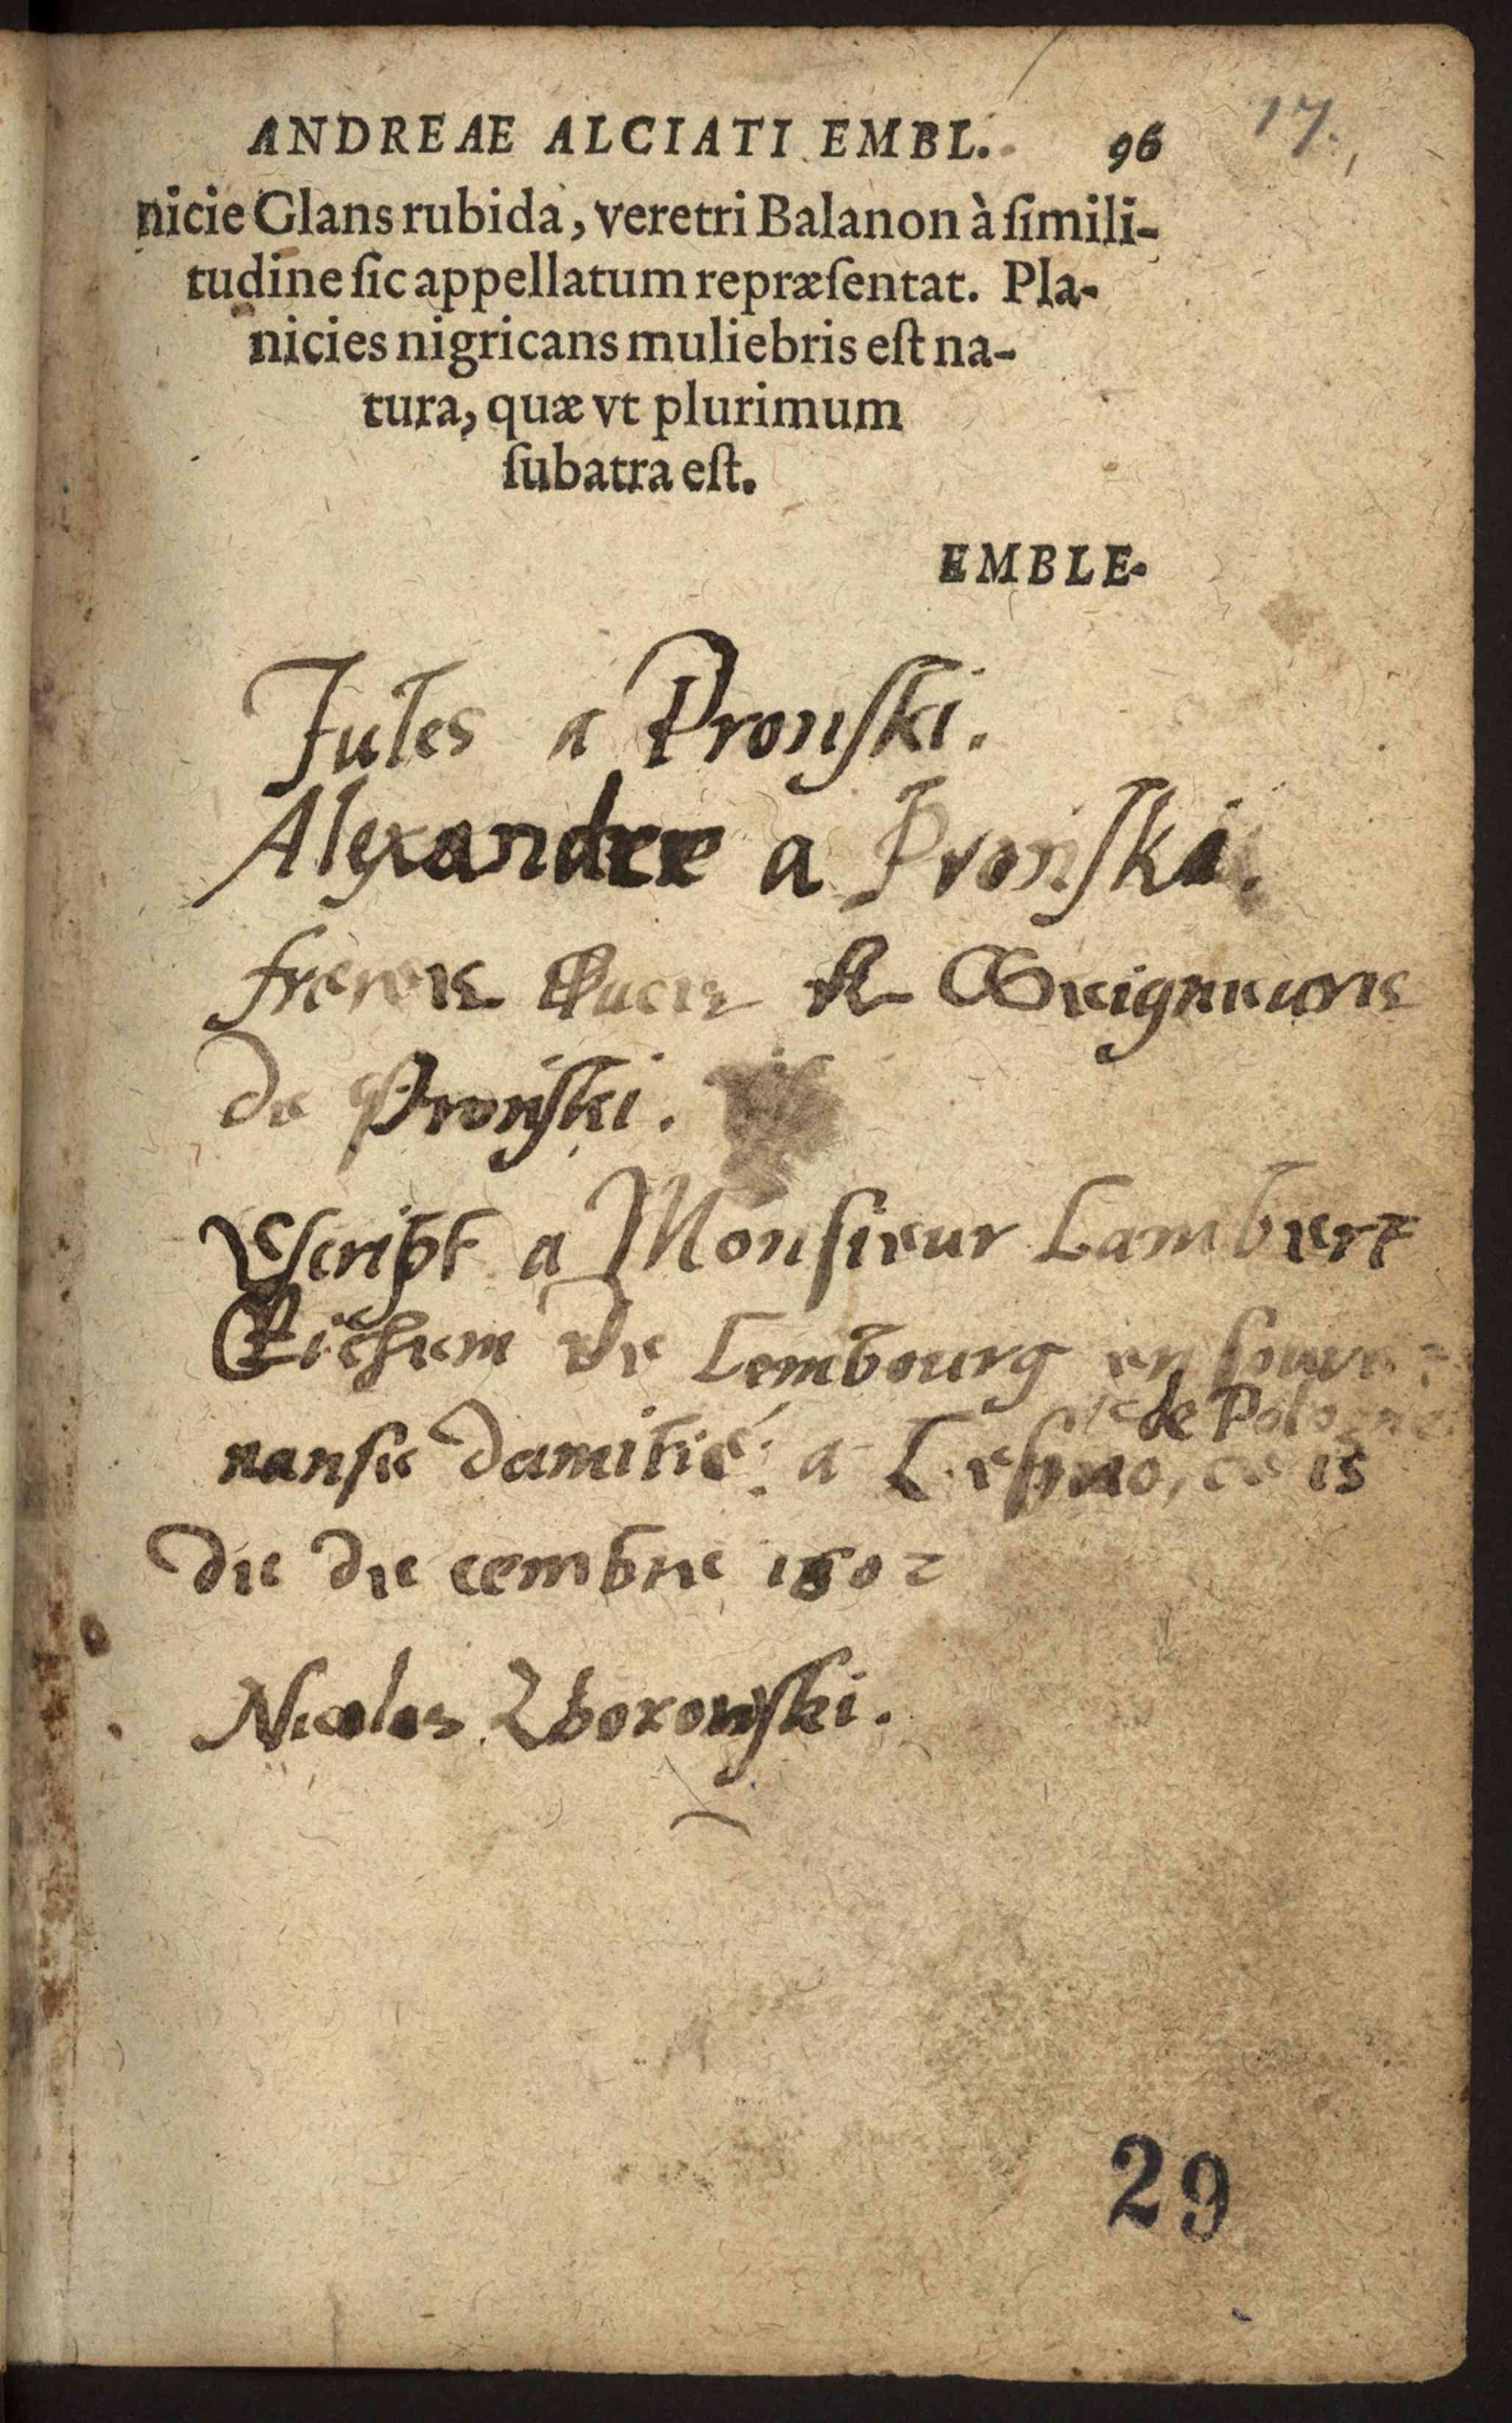 ANDREAE ALCIATI EMBL. 96 17.
nicie Glans rubida, veretri Balanon à ſimili-
tudine ſic appellatum repræſentat. Pla-
nicies nigricans muliebris eſt na-
tura, quæ vt plurimum
ſubatra eſt.
EMBLE-
Jules a Pronſki.
Alexandre a Pronſki.
freres Ducs & Seigneurs
de Pronſki.
Eſcript a Monſieur Lambert
de Lembourg en ſouve=
nanſe damitié. a
de Pologne
ce 15
de decembre 1602
Nicolas Zborowſki.
29